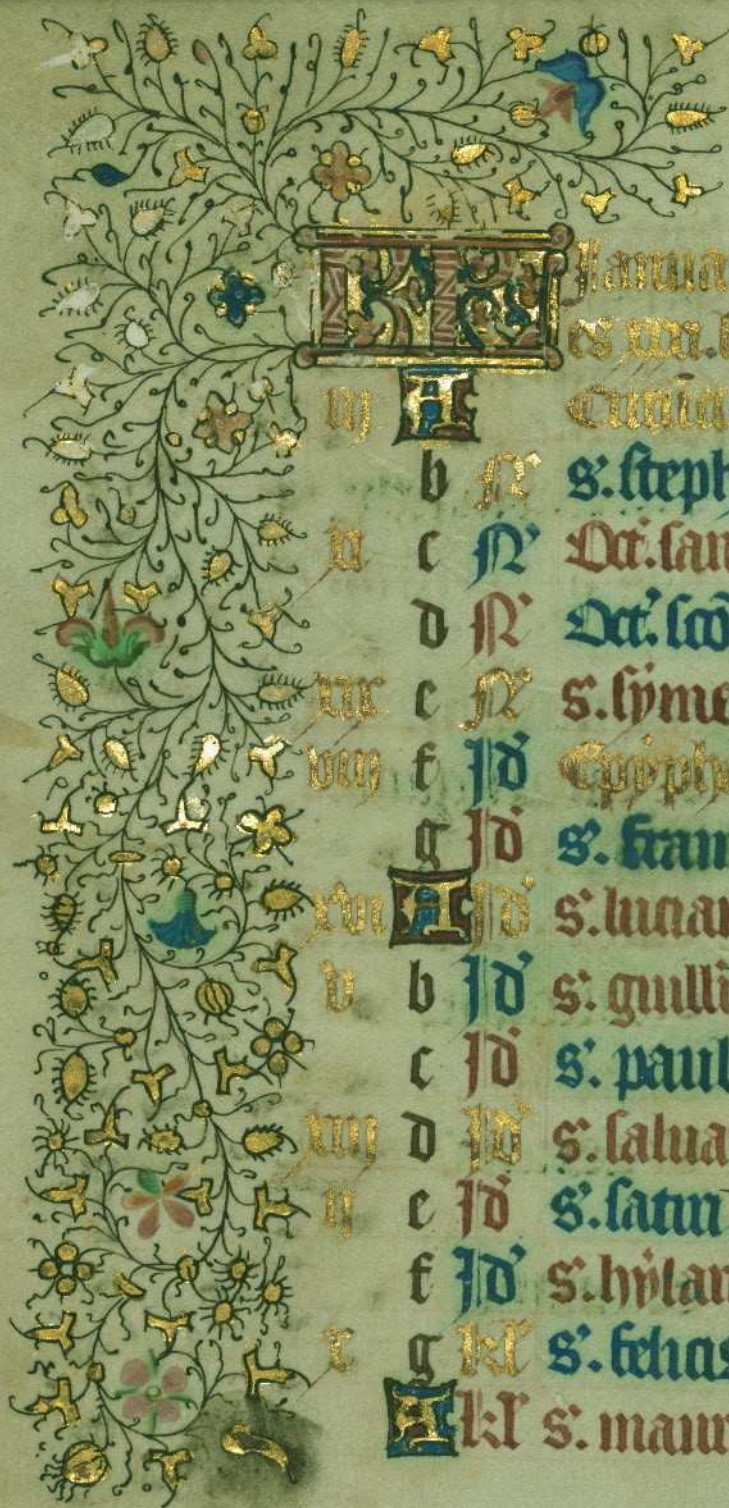 KL Ianuia
es xxxi. l
iij A Circūci
b N' s'. steph
xi c N' Oct'. san
d N' Oct'. scō
xix e N' s. syme
viij f Id' Epyph
g Id' s'. fran
xvi A Id' s'. lucian
v b Id' s'. guilli
c Id' s'. paul
xiij d Id' s'. salua
ij e Id' s'. satin
f Id' s'. hylari
x g kl' s'. felicis
A kl' s'. maur